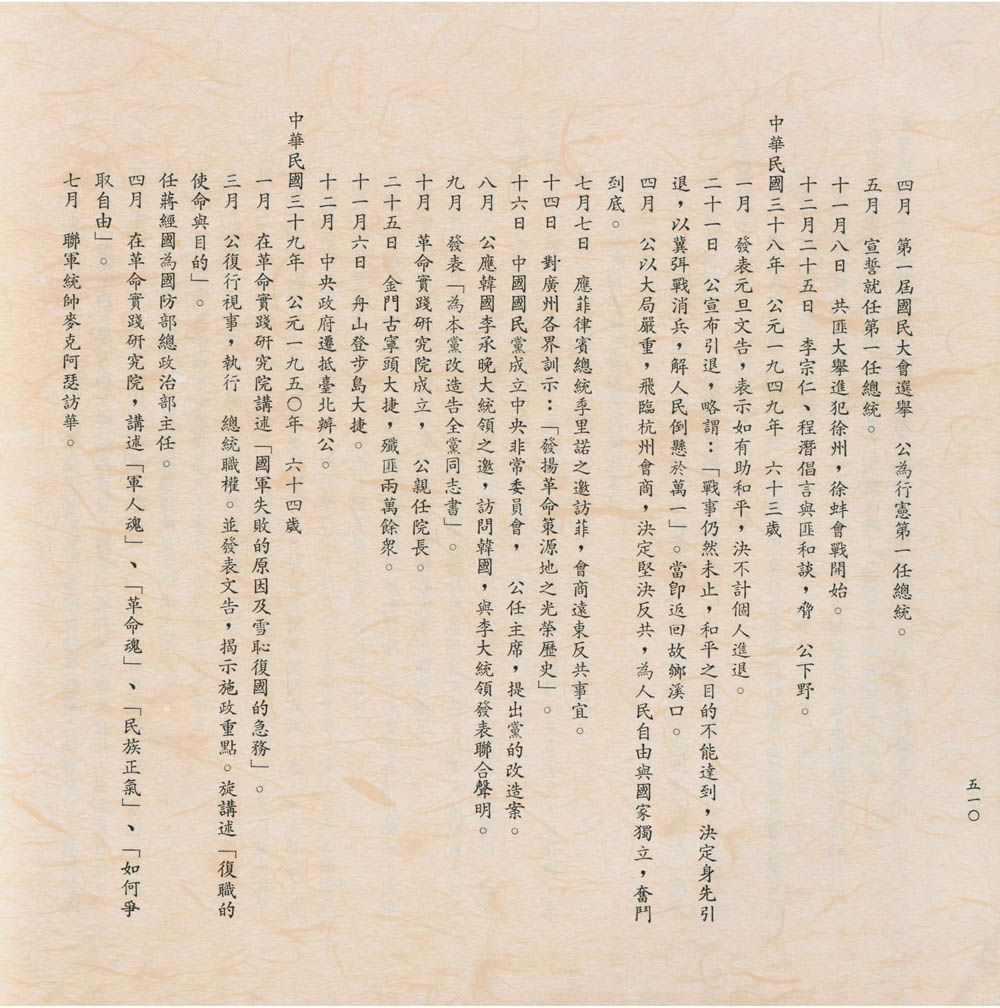 五一〇
四月　第一屆國民大會選舉　公為行憲第一任總統。
五月　宣誓就任第一任總統。
十一月八日　共匪大舉進犯徐州，徐蚌會戰開始。
十二月二十五日　李宗仁、程潛倡言與匪和談，脅　公下野。
中華民國三十八年　公元一九四九年　六十三歲
一月　發表元旦文告，表示如有助和平，決不計個人進退。
二十一日　公宣布引退，略謂：「戰事仍然未止，和平之目的不能達到，決定身先引
退，以冀弭戰消兵，解人民倒懸於萬一」。當卽返回故鄉溪口。
四月　公以大局嚴重，飛臨杭州會商，決定堅決反共，為人民自由與國家獨立，奮鬥
到底。
七月七日　應菲律賓總統季里諾之邀訪菲，會商遠東反共事宜。
十四日　對廣州各界訓示：「發揚革命策源地之光榮歷史」。
十六日　中國國民黨成立中央非常委員會，　公任主席，提出黨的改造案。
八月　公應韓國李承晚大統領之邀，訪問韓國，與李大統領發表聯合聲明。
九月　發表「為本黨改造告全黨同志書」。
十月　革命實踐研究院成立，　公親任院長。
二十五日　金門古寧頭大捷，殲匪兩萬餘衆。
十一月六日　舟山登步島大捷。
十二月　中央政府遷抵臺北辦公。
中華民國三十九年　公元一九五〇年　六十四歲
一月　在革命實踐研究院講述「國軍失敗的原因及雪恥復國的急務」。
三月　公復行視事，執行　總統職權。並發表文告，揭示施政重點。旋講述「復職的
使命與目的」。
任蔣經國為國防部總政治部主任。
四月　在革命實踐研究院，講述「軍人魂」、「革命魂」、「民族正氣」、「如何爭
取自由」。
七月　聯軍統帥麥克阿瑟訪華。